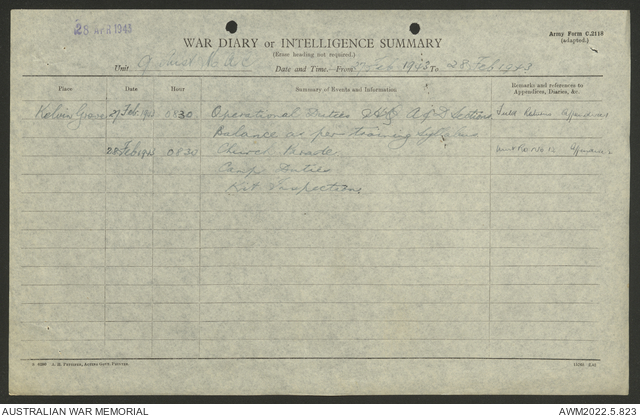 28 APR 1943
Army Form C.2118
(adapted.)
WAR DIARY or INTELLIGENCE SUMMARY
(Erase heading not required.)
Unit
Date and Time—From Feb 1943 To 28 Feb 1943
Place Date Hour Summary of Events and Information Remarks and references to Appendices, Diaries, &c.
Kelvin Grove 27 Feb. 1943 0830 Operational Duties Sections Field Returns Appendices
Balance as per training Syllabus
28 Feb 1943 0830 Church Parade
Camp Duties
Kit Inspections
A. H. Pettifer, Acting Govt. Printer.
AUSTRALIAN WAR MEMORIAL
AWM2022.5.823